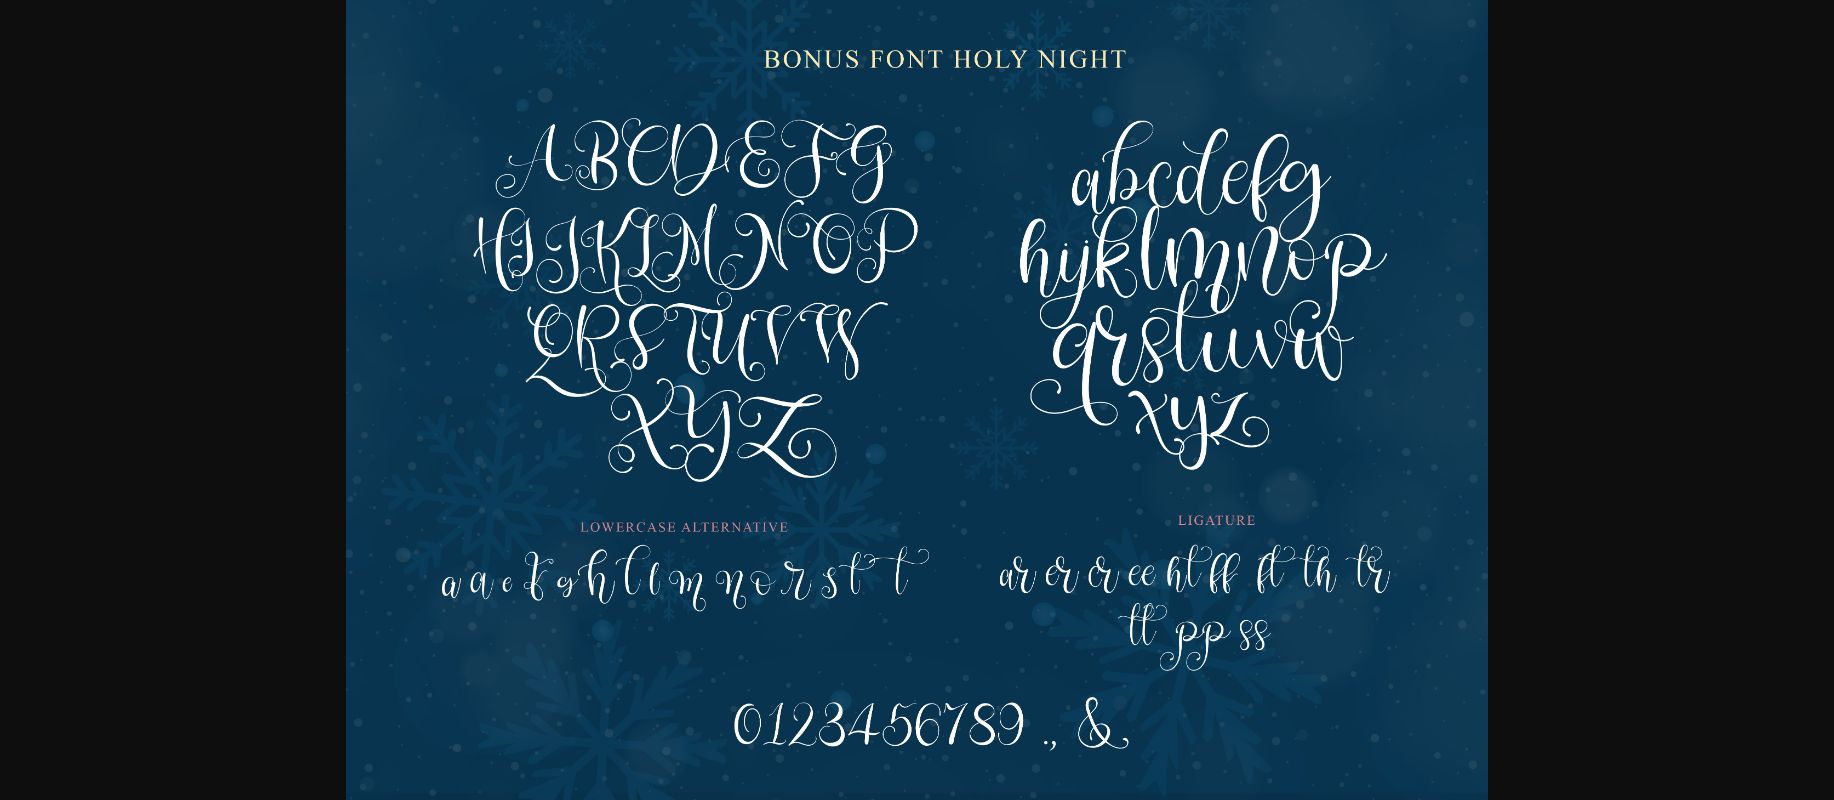 BONUS FONT HOLY NIGHT
ABCDEFG
HIJKLMNOP
QRSTUVW
XYZ
abcdefg
hijklmnop
qrstuvw
xyz
LOWERCASE ALTERNATIVE
a a e f g h l l m n o r s t t
LIGATURE
ar er or ee ht ff ft th tr
tt pp ss
0123456789 ., &